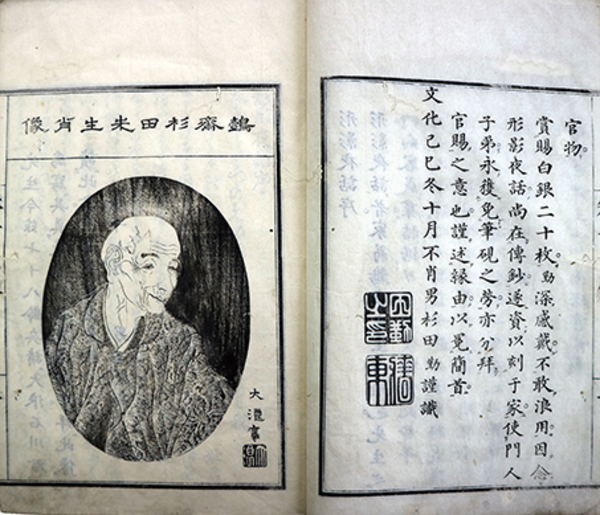 官物。
賞賜白銀二十枚。勤深感戴。不敢浪用。因念
形影夜話。尚在傳鈔。遂資以刻于家。使門人
子弟永獲免筆硯之勞。亦公拜
官賜之意也。謹述緣由。以冕簡首。
文化己巳冬十月不肖男杉田勤謹識
鷧齋杉田先生肖像
大浪寫